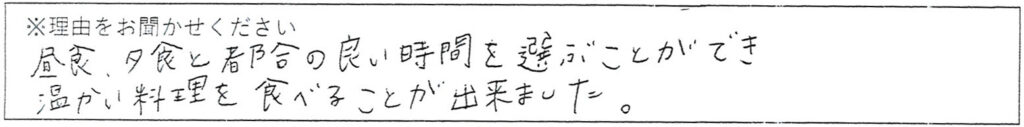 ※理由をお聞かせください
昼食、夕食と都合の良い時間を選ぶことができ
温かい料理を食べることが出来ました。